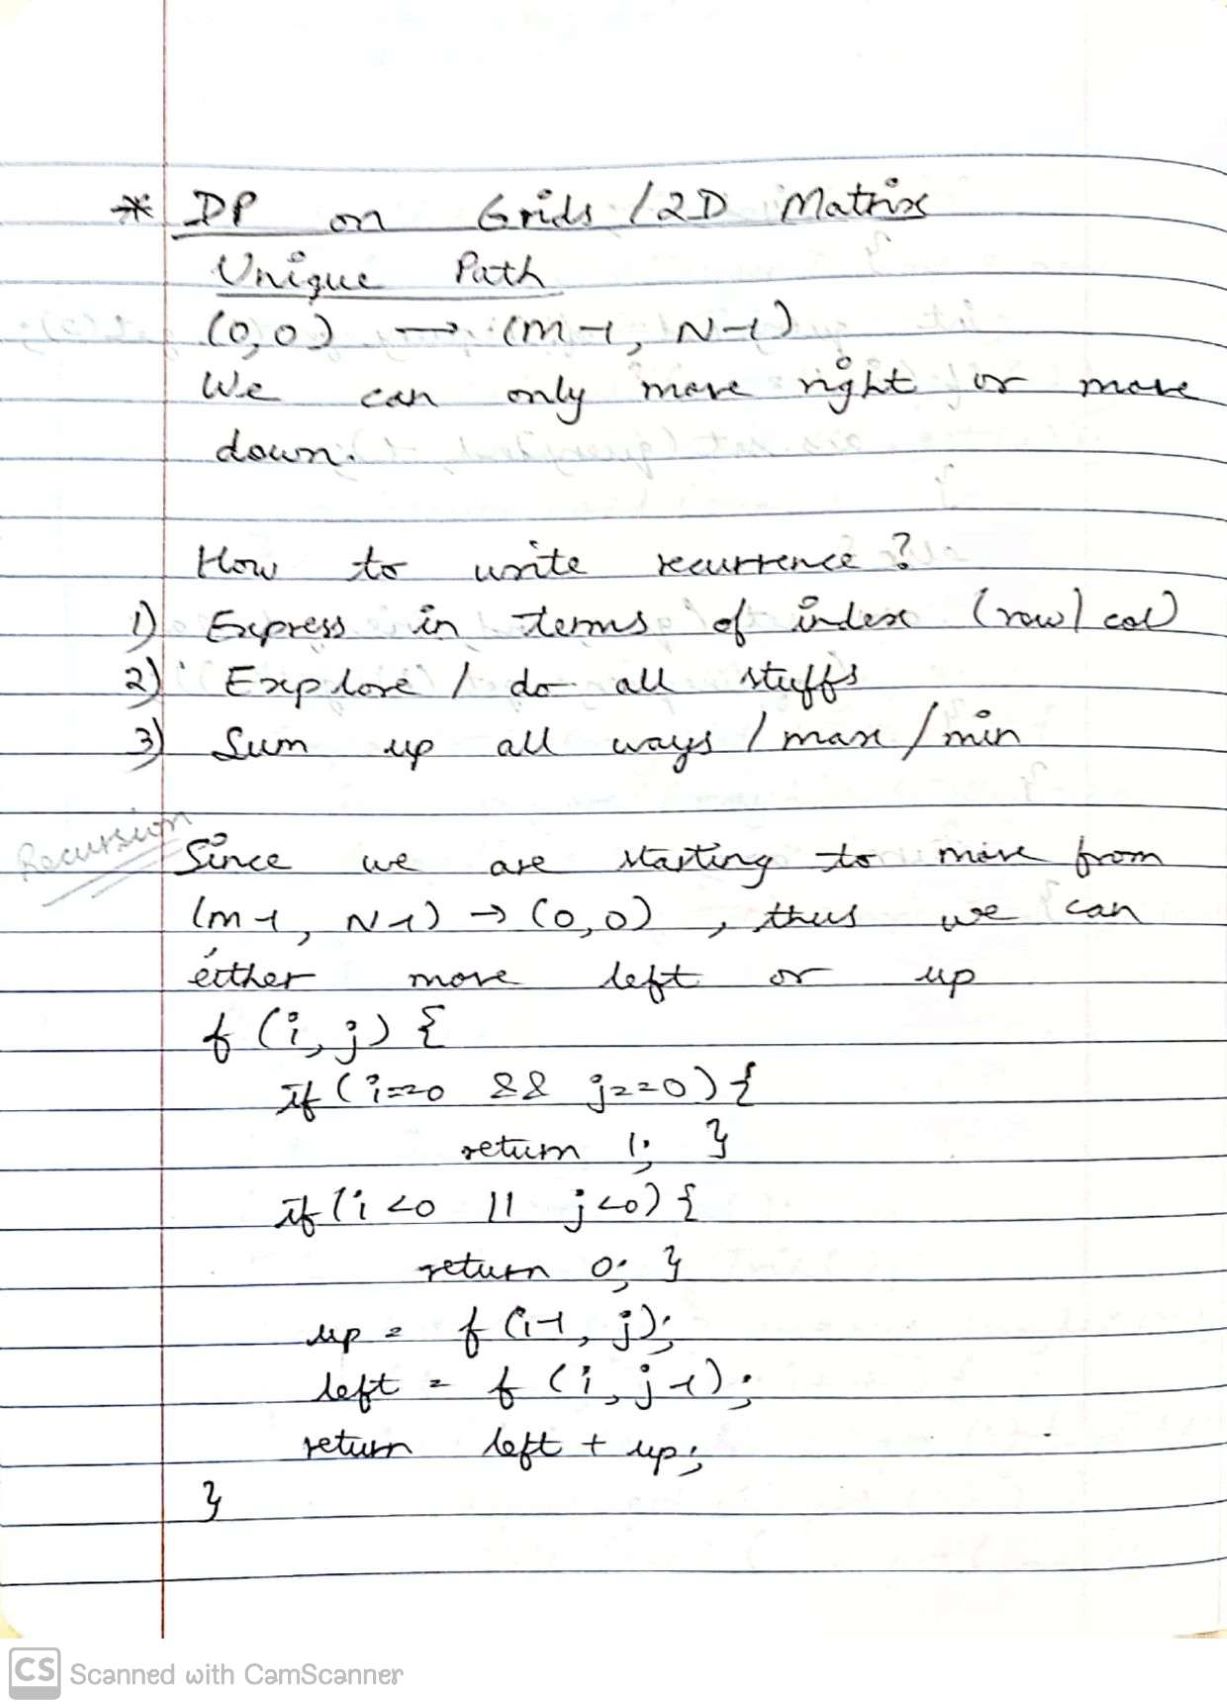 * DP on Grids / 2D Matrix
Unique Path
(0,0) → (M-1, N-1)
We can only move right or move
down.
How to write recurrence ?
1) Express in terms of index (row/col)
2) Explore / do all stuffs
3) Sum up all ways / max / min
Recursion
Since we are starting to move from
(M-1, N-1) → (0,0) , thus we can
either move left or up
f (i, j) {
if (i==0 && j==0) {
return 1; }
if (i <0 || j<0) {
return 0; }
up = f (i-1, j);
left = f (i, j-1);
return left + up;
}
CS Scanned with CamScanner